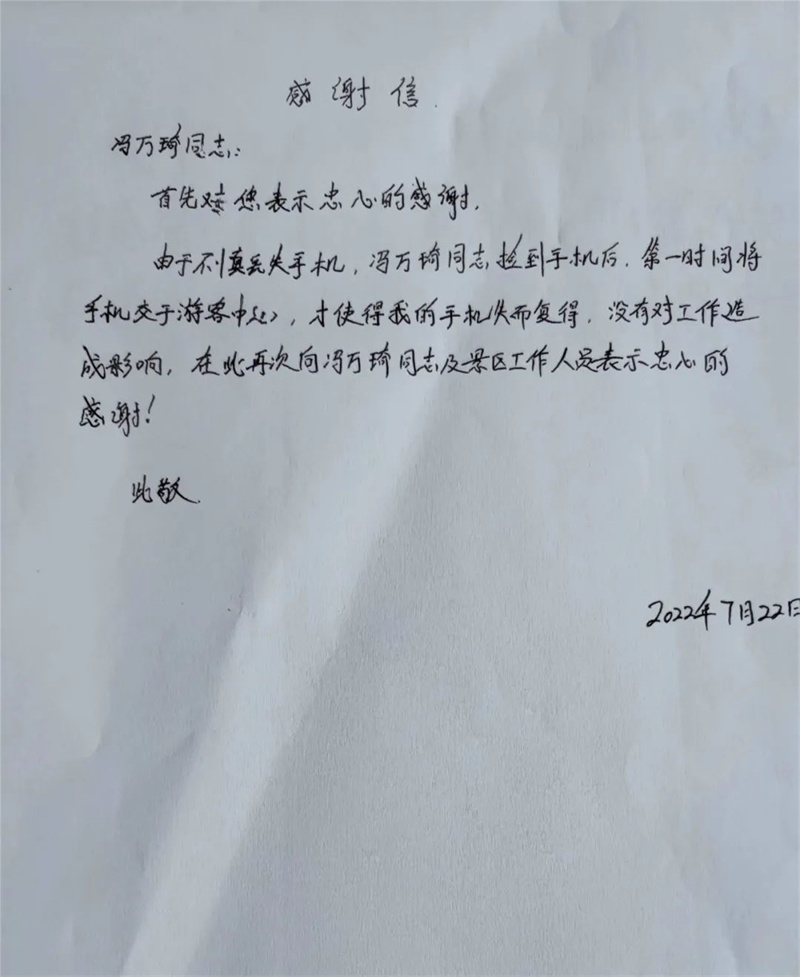 感谢信.
冯万琦同志:
首先对您表示忠心的感谢.
由于不慎丢失手机,冯万琦同志捡到手机后.第一时间将
手机交于游客中心,才使得我的手机失而复得.没有对工作造
成影响,在此再次向冯万琦同志及景区工作人员表示忠心的
感谢!
此敬
2022年7月22日